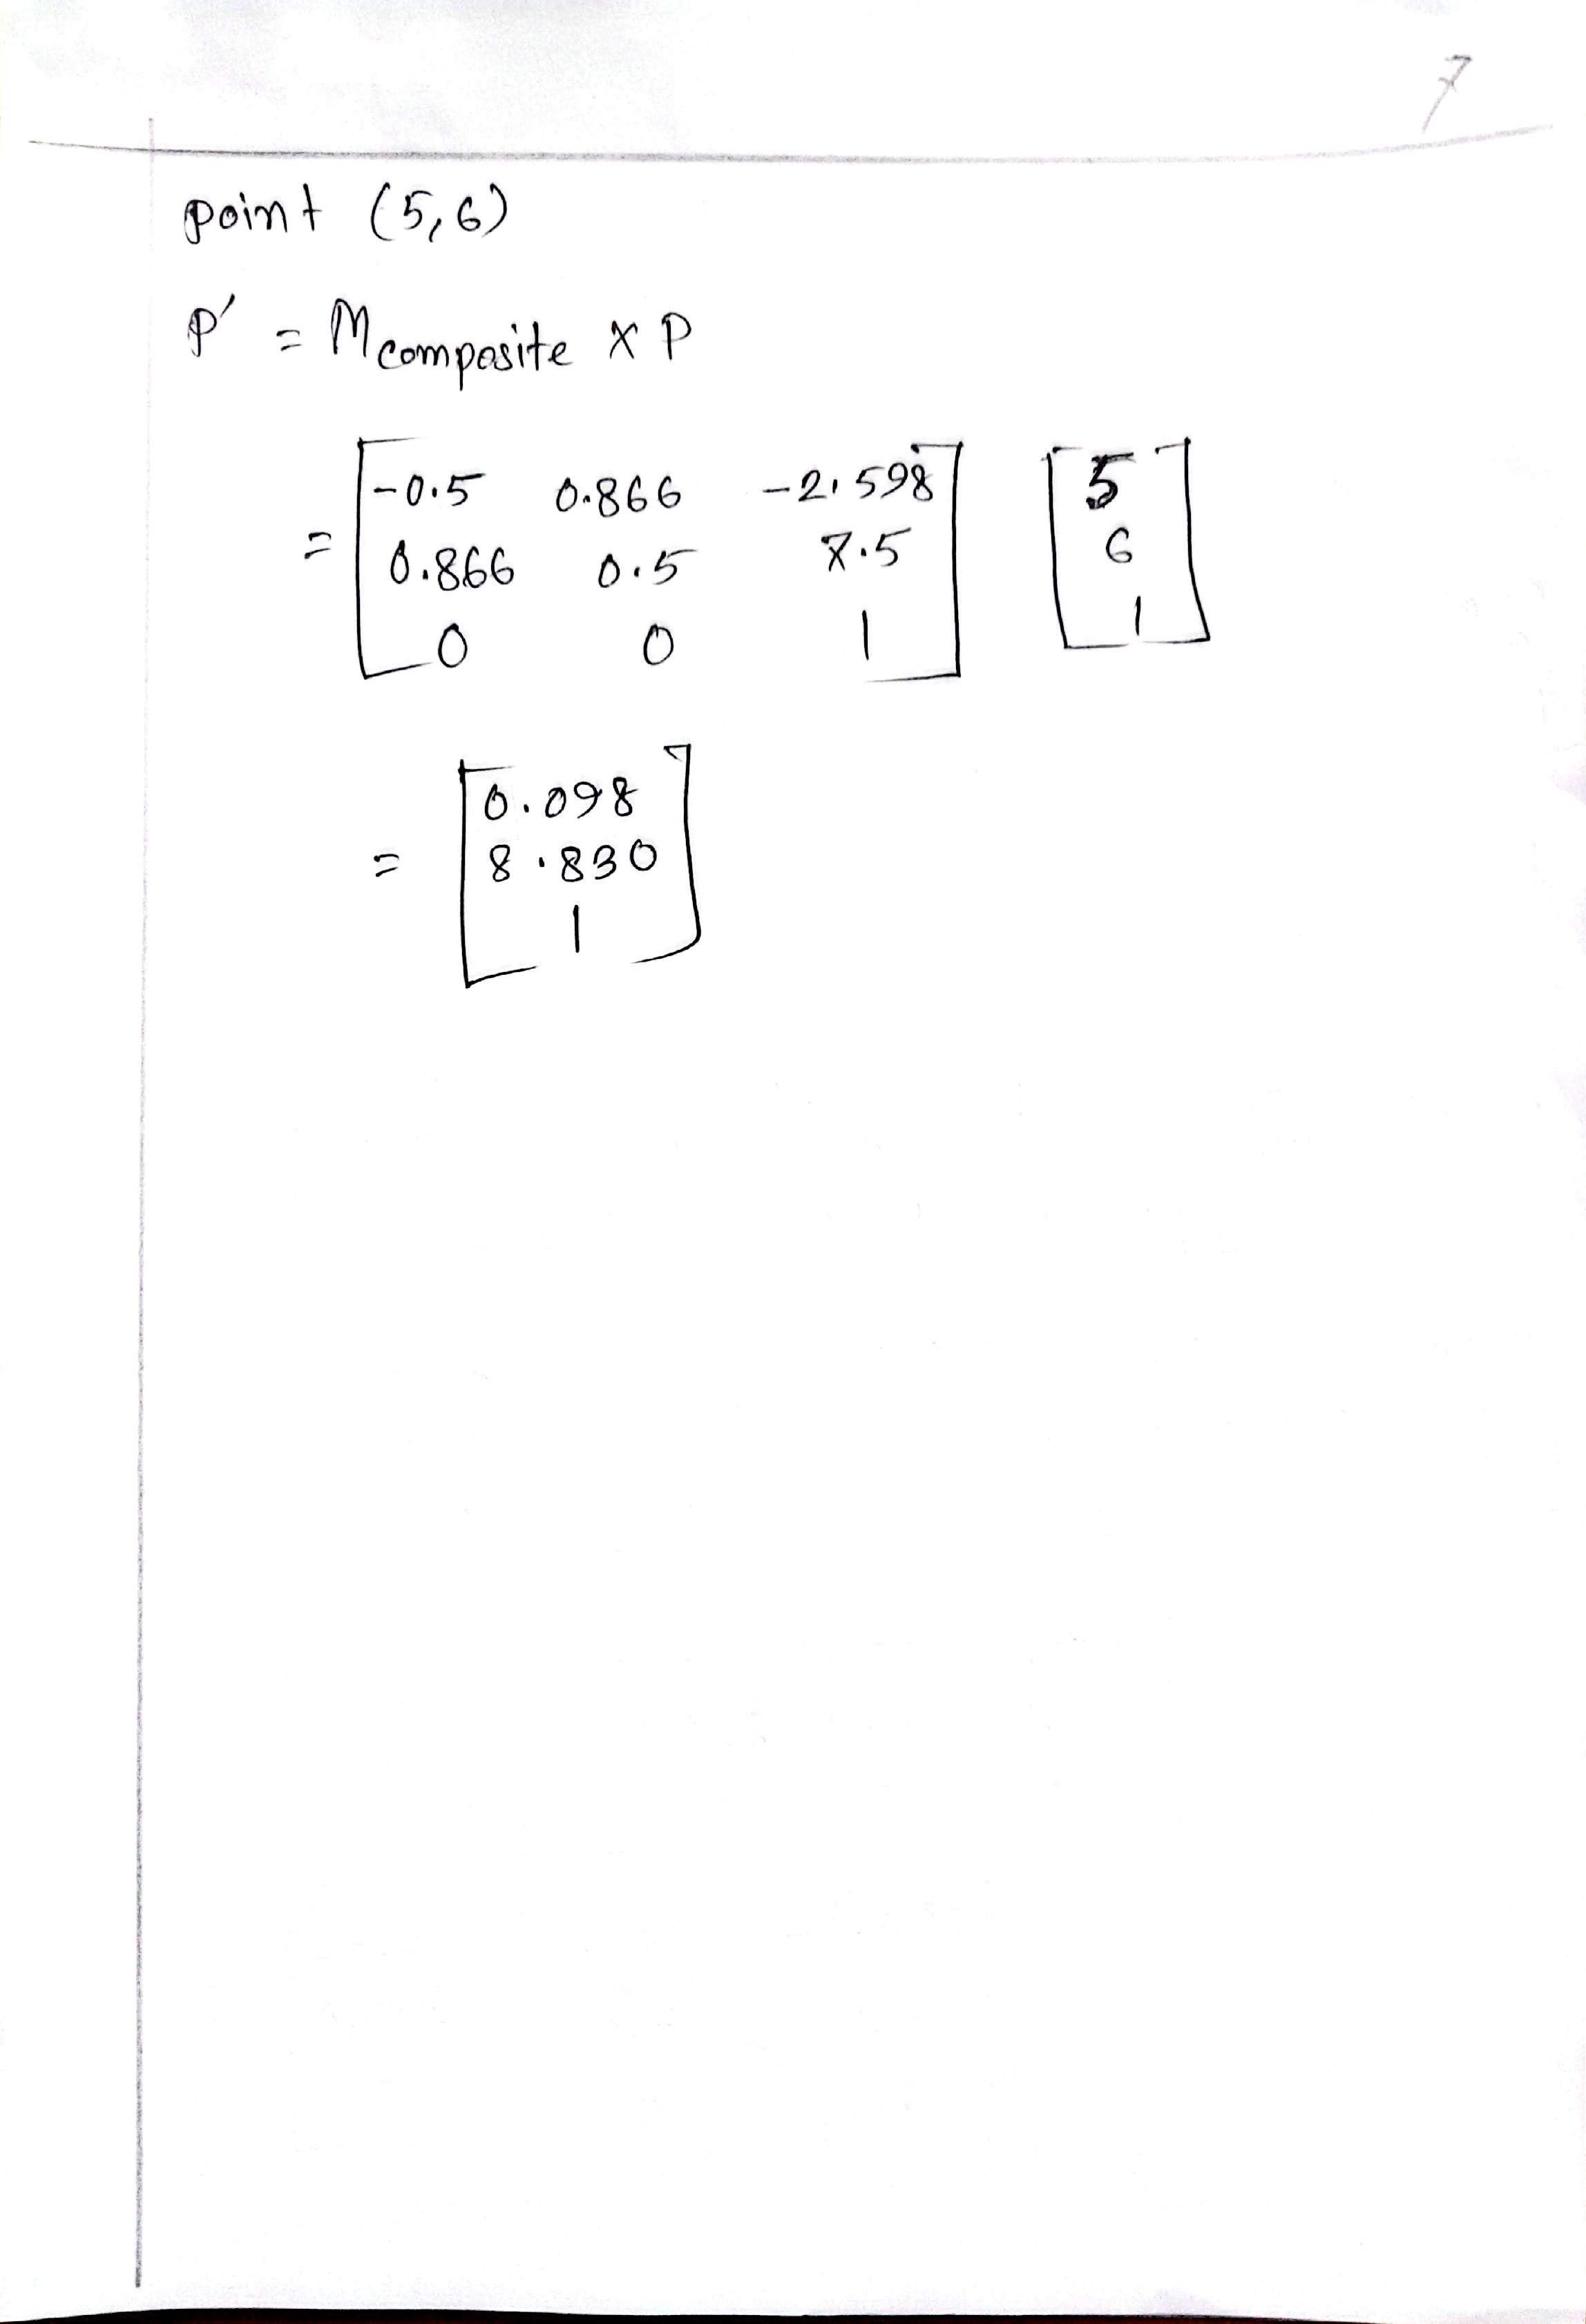 7
point (5,6)
P' = Mcomposite x P
= [-0.5 0.866 -2.598] [5]
[0.866 0.5 .5] [6]
[0 0 1] [1]
= [0.098]
[8.830]
[1]